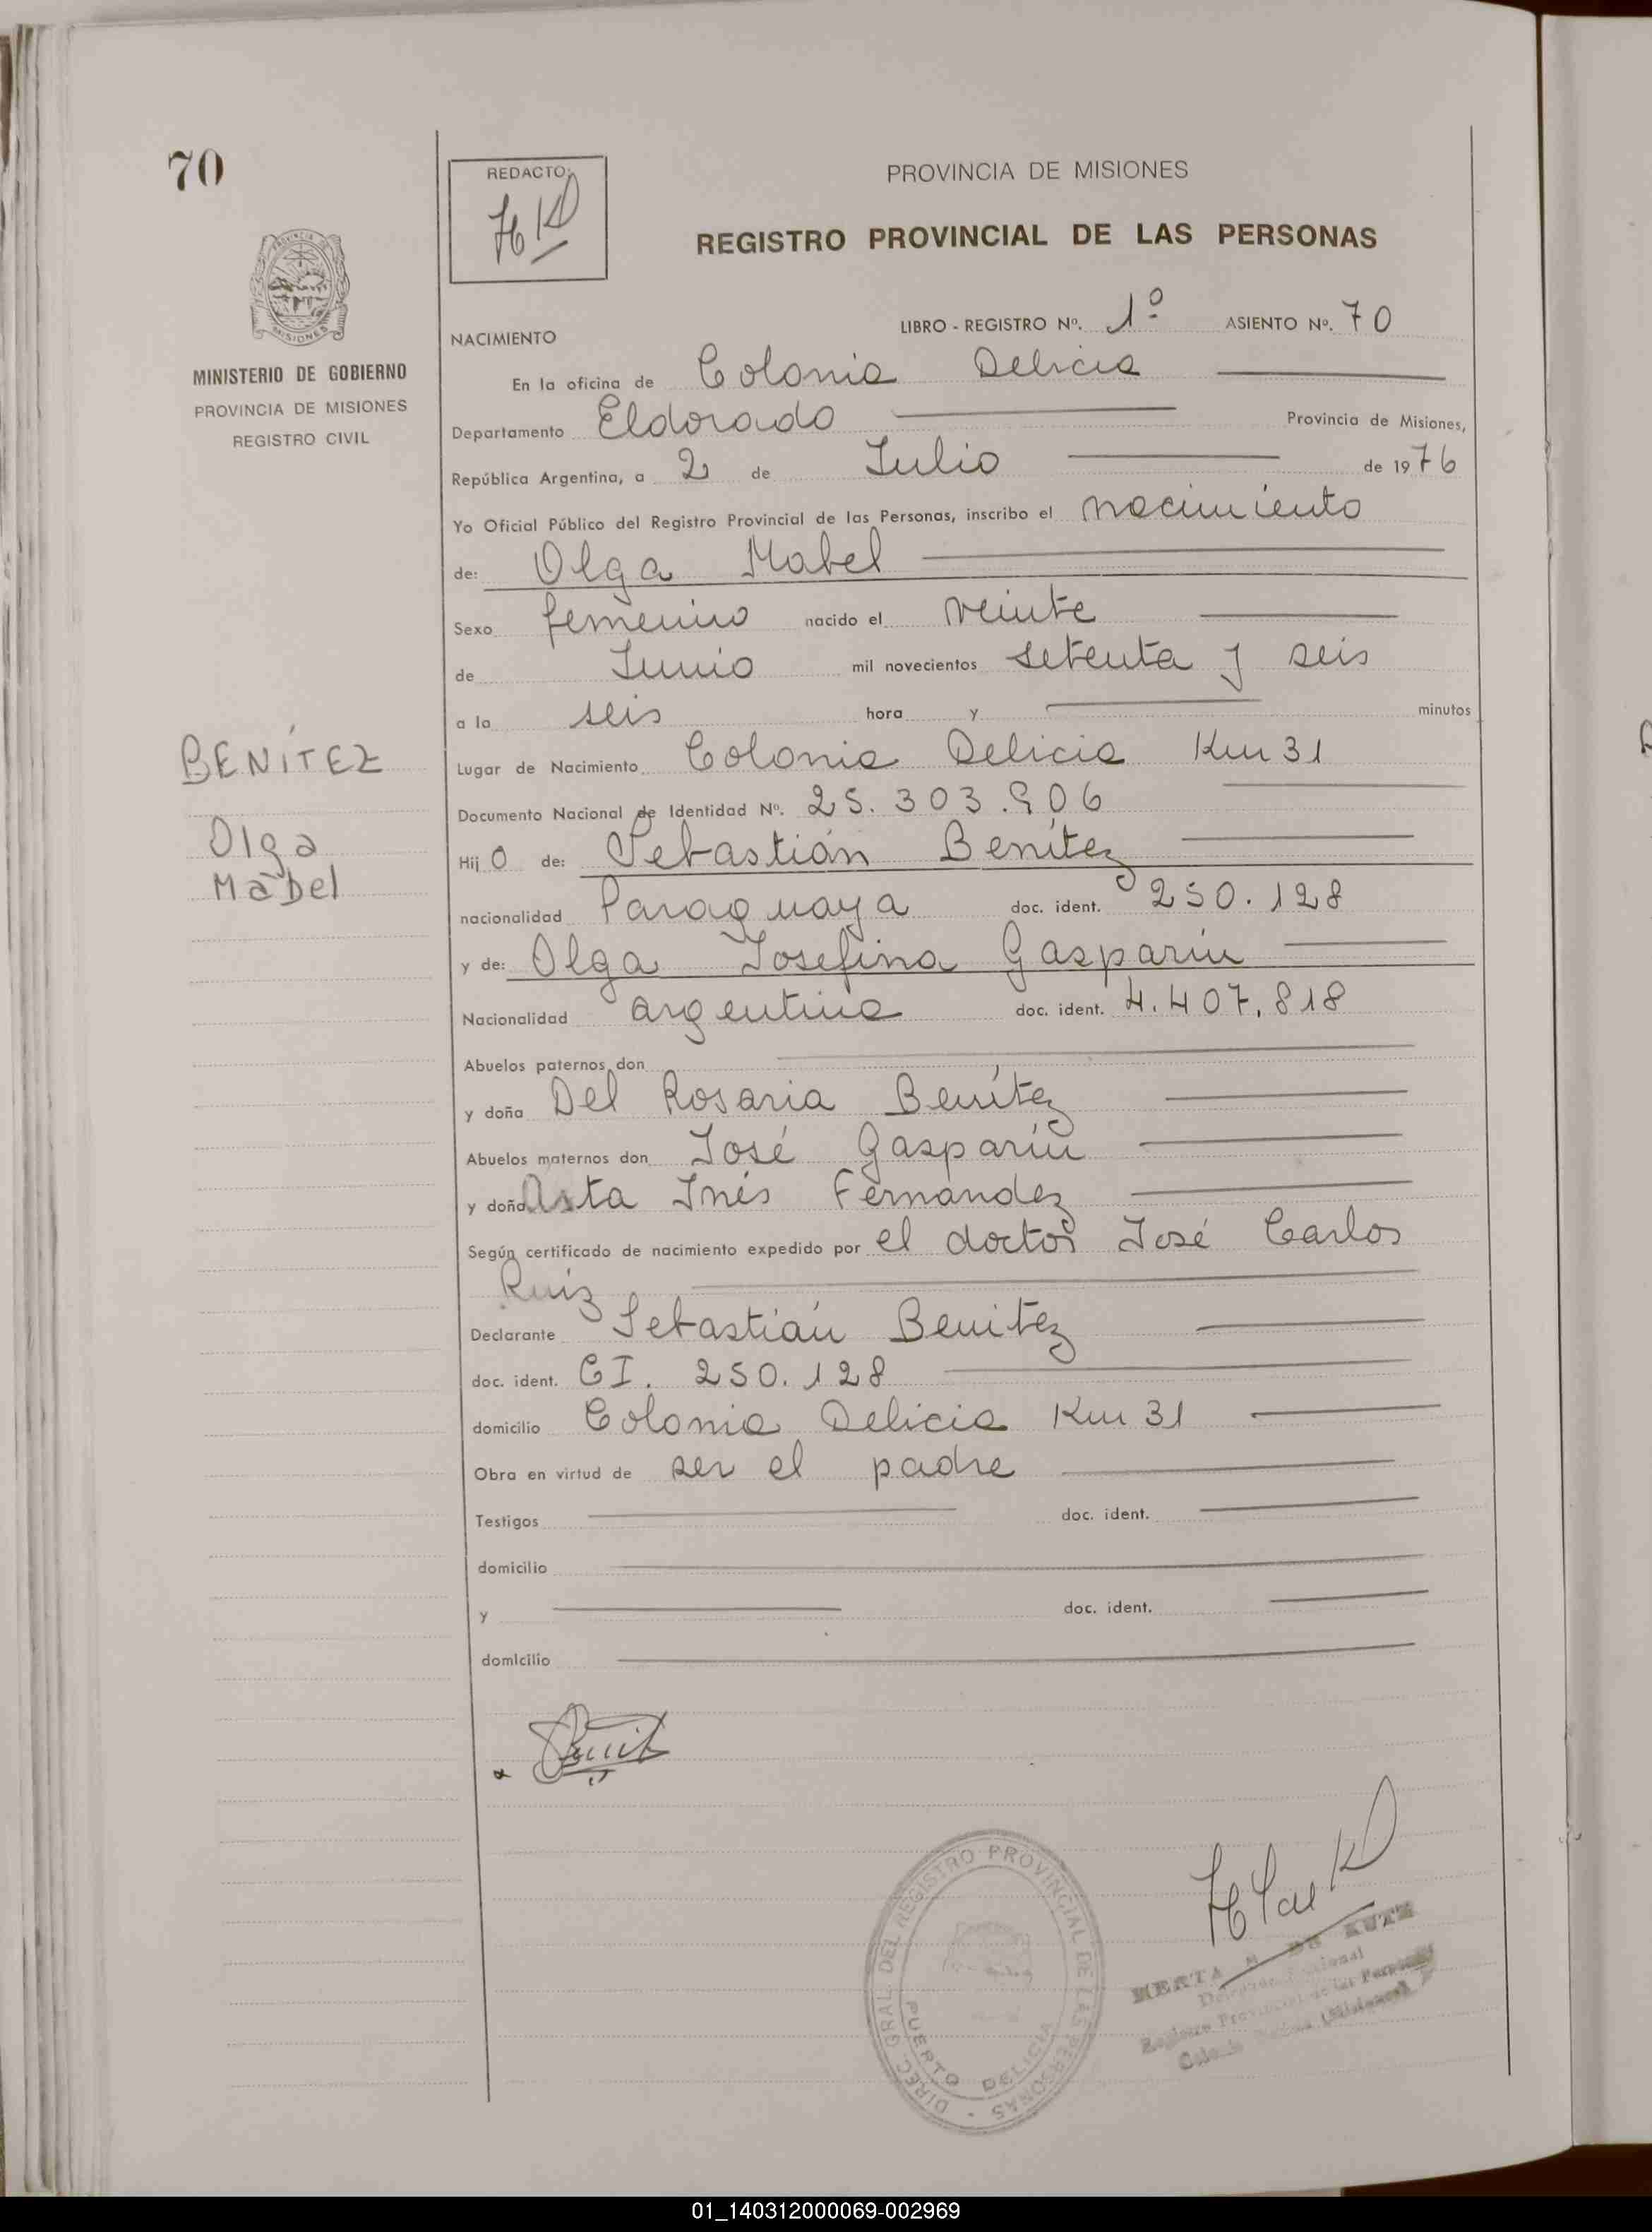 70
REDACTO:
PROVINCIA DE MISIONES
REGISTRO PROVINCIAL DE LAS PERSONAS
PROVINCIA DE
MISIONES
MINISTERIO DE GOBIERNO
PROVINCIA DE MISIONES
REGISTRO CIVIL
LIBRO - REGISTRO Nº. 1º ASIENTO Nº. 70
NACIMIENTO
En la oficina de Colonia Delicia
Departamento Eldorado Provincia de Misiones,
República Argentina, a 2 de Julio de 1976
Yo Oficial Público del Registro Provincial de las Personas, inscribo el nacimiento
de: Olga Mabel
Sexo femenino nacido el veinte
de Junio mil novecientos setenta y seis
a la seis hora y minutos
Lugar de Nacimiento Colonia Delicia Km 31
BENÍTEZ
Olga
Mabel
Documento Nacional de Identidad Nº. 25.303.906
Hij O de: Sebastián Benítez
nacionalidad Paraguaya doc. ident. 250.128
y de: Olga Josefina Gasparín
Nacionalidad argentina doc. ident. 4.407.818
Abuelos paternos don
y doña Del Rosaria Benítez
Abuelos maternos don José Gasparín
y doña Asta Inés Fernández
Según certificado de nacimiento expedido por el doctor José Carlos
Ruiz
Declarante Sebastián Benitez
doc. ident. CI. 250.128
domicilio Colonia Delicia Km 31
Obra en virtud de ser el padre
Testigos doc. ident.
domicilio
y doc. ident.
domicilio
DIREC. GRAL. DEL REGISTRO PROVINCIAL DE LAS PERSONAS -
PUERTO DELICIA
HERTA M. DE KUTZ
Registro Provincial de las Personas
(Misiones)
01_140312000069-002969